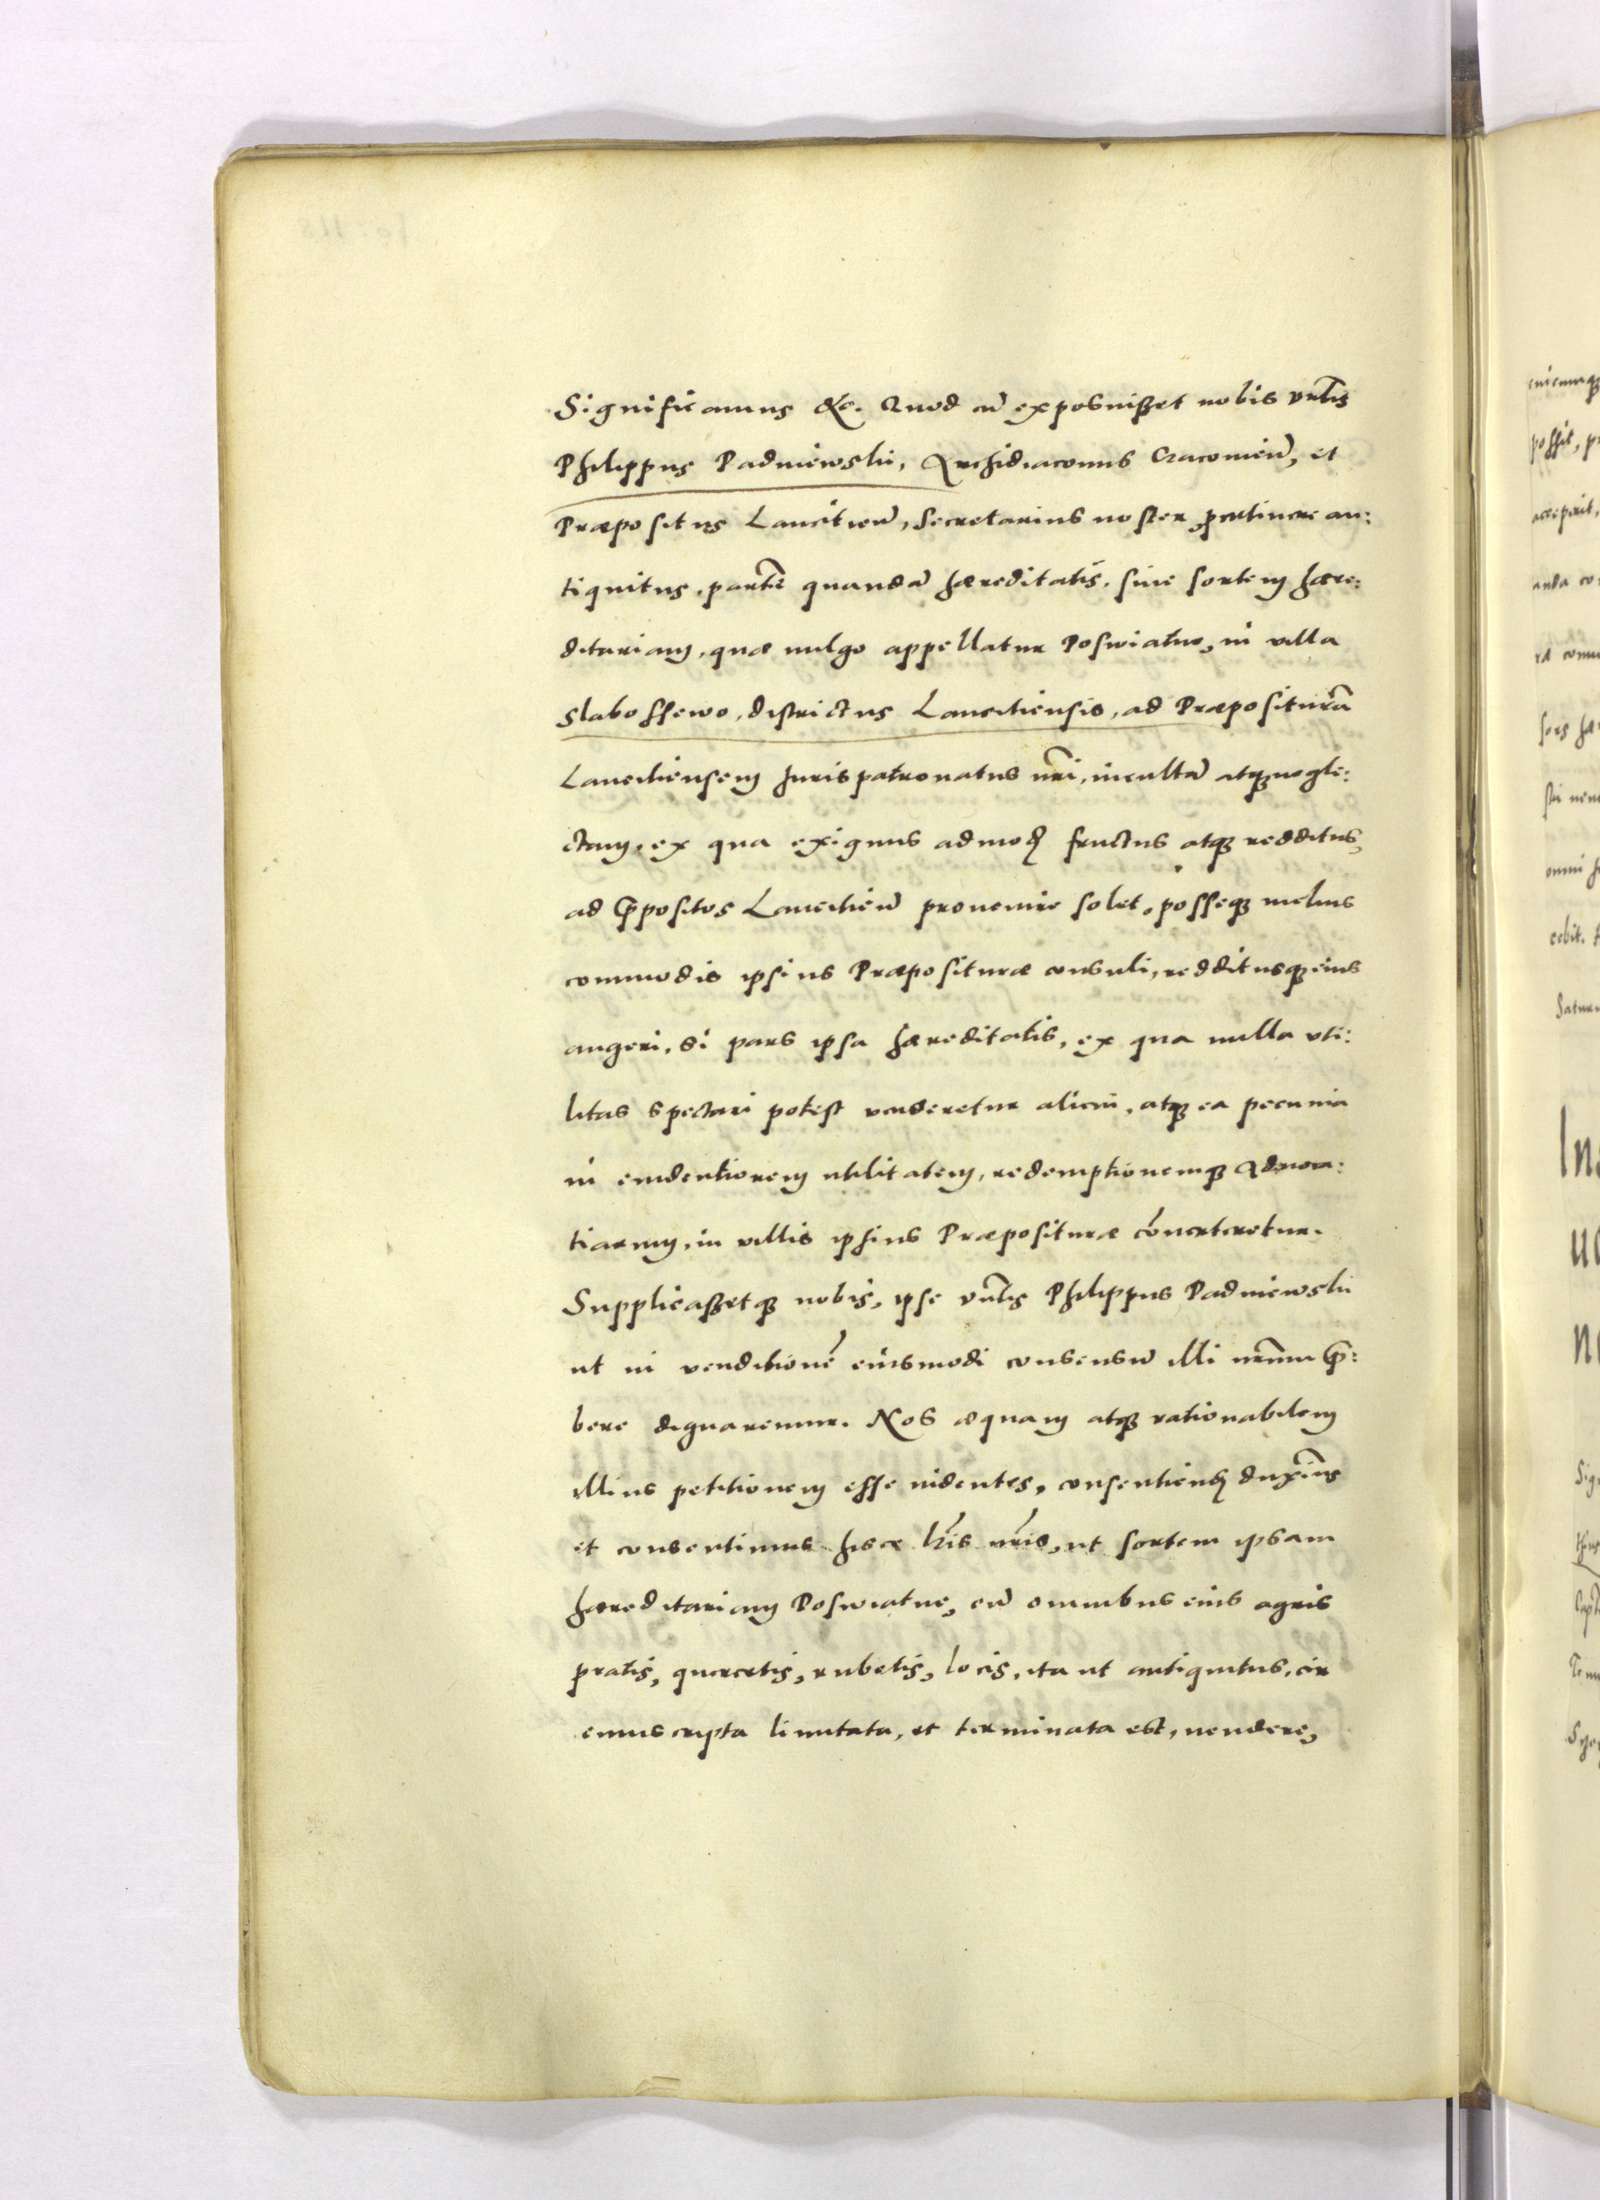 Significamus &c. Quod cū exposuisset nobis vn̄lis
Philippus Padniewski, Archidiaconus Cracovień, et
Præpositus Lanciticń, Secretarius noster, pertinere an:
tiquitus, partē quandā hæreditatis, sive sortem hære:
ditariam, quæ vulgo appellatur Poswiatne, in villa
Slabossewo, districtus Lanciciensis, ad Præposituram̄
Lanciciensem Juris patronatus nr̄i, incultā atq; negle:
ctam, ex qua exiguus admodū fructus atq; redditus,
ad p̄positos Lancicień provenire solet, posseq; melius
commodis ipsius Præpositurae consuli, redditusq; eius
augeri, si pars ipsa hæreditatis, ex qua nulla uti:
litas spectari potest venderetur alicui, atq; ea pecunia
in evidentiorem utilitatem, redemptionemq; Advoca:
tiarum, in villis ipsius Præpositurae cōverteretur.
Supplicassetq; nobis, ipse vn̄lis Philippus Padniewski
ut in venditionē eiusmodi consensū illi nr̄um p̄:
bere dignaremur. Nos æquam atq; rationabilem
illius petitionem esse videntes, consentiendū duxim̄s
et consentimus hisce lr̄is nr̄is, ut sortem ipsam
hæreditariam Poswiatne, cū omnibus eius agris
pratis, quercetis, rubetis, locis, ita ut antiquitus, cir
cumscripta limitata, et terminata est, vendere,